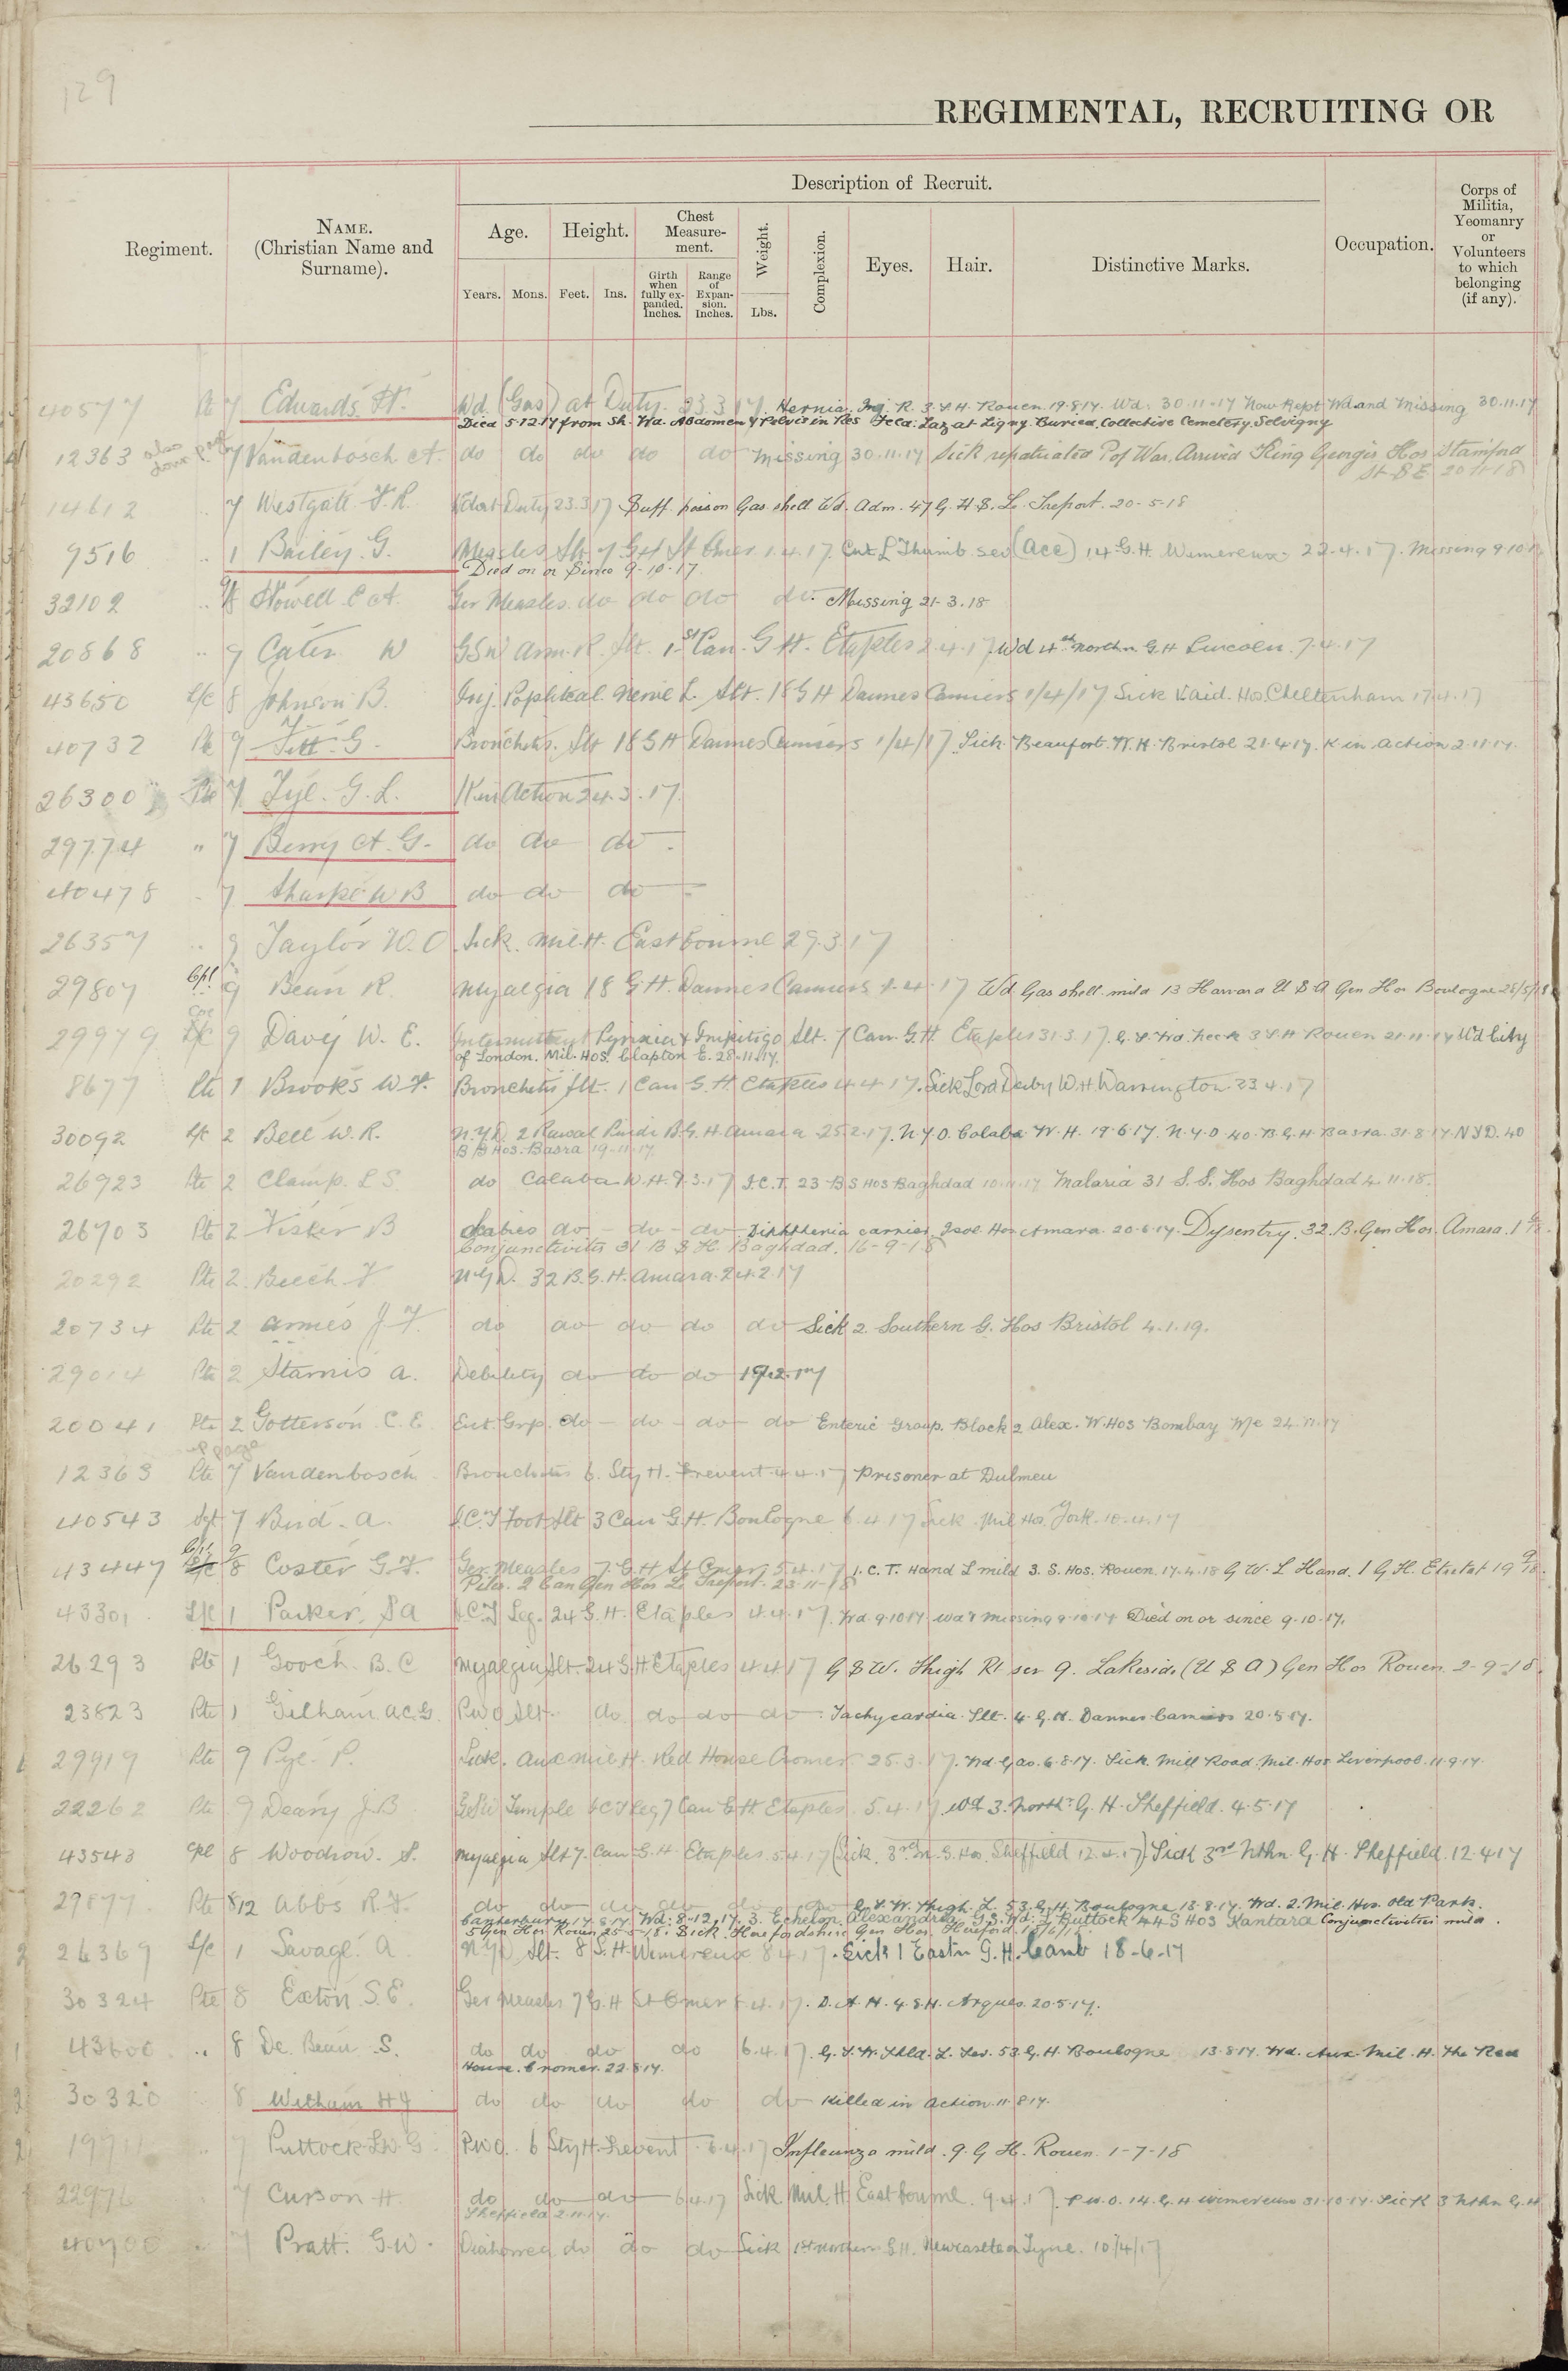 129
REGIMENTAL, RECRUITING OR
Regiment.
NAME.
(Christian Name and
Surname).
Description of Recruit.
Age.
Height.
Chest
Measure-
ment.
Weight.
Complexion.
Eyes.
Hair.
Distinctive Marks.
Occupation.
Corps of
Militia,
Yeomanry
or
Volunteers
to which
belonging
(if any).
Years.
Mons.
Feet.
Ins.
Girth
when
fully ex-
panded.
Inches.
Range
of
Expan-
sion.
Inches.
Lbs.
40577 Pt 7 Edwards. H. Wd. (Gas) at Duty. 23.3.17. Hernia. Ing. R. 3. S. H. Rouen. 19.8.17. Wd. 30.11.17 Now Rept Wd and Missing 30.11.17
Died 5.12.17 from Sh. Wd. Abdomen & Pelvis in Res Feld. Laz at Ligny. Buried Collective Cemetery. Selvigny
12363 also 7 Vandenbosch A. do do do do do Missing 30.11.17 Sick repatriated P of War. Arrived King Georges Hos Stamford
St. S.E 20.11.18
14612 .. 7 Westgate F. R. Wd at Duty 23.3.17 Suff. poison Gas shell Wd. Adm. 47 G. H. Le Treport. 20-5-18
9516 .. 1 Bailey. G. Measles Slt. 7 G H St Omer 1.4.17. Cut L Thumb sev (Acc) 14 G. H. Wimereux 22.4.17. Missing 9.10.17
Died on or Since 9-10-17.
32102 .. Howell C A. Ger Measles. do do do do. Missing 21-3.18
20868 .. 9 Cater W GSW Arm. R. Slt. 1st Can. G H. Etaples 2.4.17. Wd 4th Northn G. H Lincoln. 7.4.17
43650 L/c 8 Johnson B. Inj. Popliteal. Nerve L. Slt. 18 G H Dannes Camiers 1/4/17 Sick V. aid. Hos. Cheltenham 17.4.17
40732 Pte 9 Titt. G. Bronchitis. Slt 18 G H Dannes Camiers 1/4/17. Sick Beaufort. W. H. Bristol 21.4.17. K in Action 2.11.17.
26300 Pte 7 Tye. G. L. K in Action 24.3.17.
29774 " 7 Berry A. G. do do do.
40478 .. 7 Sharpe W B do do do
26357 .. 9 Taylor W. O. Sick. Mil. H. Eastbourne 29.3.17
29807 Cpl 9 Bean R. Myalgia 18 G. H. Dannes Camiers 1.4.17 Wd Gas shell mild 13 Harvard U S A Gen Hos Boulogne 28/5/18
29979 L/c 9 Davey W. E. Intermittent Pyrexia & Impitigo Slt. 7 Can. G. H. Etaples 31.3.17. G. S. Wd. Neck 3 S. H Rouen 21.11.17 Wd City
of London. Mil. Hos. Clapton E. 28.11.17.
8677 Pte 1 Brooks W F. Bronchitis Slt. 1 Can G. H. Etaples 4.4.17. Sick Lord Derby W. H. Warrington 23.4.17
30092 L/c 2 Bell W. R. N.Y.D. 2 Rawal Pindi B. G. H. Amara 25.2.17. N.Y.D. Colaba W. H. 19.6.17. N.Y.D. 40. B. G. H. Basra. 31.8.17. N Y D. 40
B G Hos. Basra 19.11.17.
26923 Pte 2 Clamp. L S. do Colaba W. H. 9.3.17 I.C.T. 23 B S Hos Baghdad 10.11.17 Malaria 31 S. S. Hos Baghdad 4.11.18.
26703 Pt 2 Visker B Scabies do - do - do - Diphtheria carrier. Isol. Hos Amara. 20.6.17. Dysentry. 32. B. Gen Hos. Amara.
Conjunctivitis 31 B S H. Baghdad. 16-9-18
20292 Pte 2. Beech F N.Y.D. 32 B. G. H. Amara. 24.2.17
20734 Pte 2 Armes J F. do do do do do Sick 2 Southern G. Hos Bristol 4.1.19.
29014 Pte 2 Stamis A. Debility do do do 19.2.17
20041 Pte 2 Gotterson C. E. Ent Grp. do - do - do - do Enteric Group. Block 2 Alex. W. Hos Bombay W/e 24.11.17
12363 Pte 7 Vandenbosch. Bronchitis 6. Sty H. Frevent 4.4.17 Prisoner at Dulmen
40543 Sgt 7 Bird. A. I.C.T Foot Slt 3 Can G. H. Boulogne 6.4.17 Sick. Mil Hos. York. 10.4.17
43447 Cpl 8 Coster G. F. Ger. Measles 7 G. H St Omer 5.4.17 I.C.T. Hand L mild 3. S. Hos. Rouen. 17.4.18 G W. L Hand. 1 G H. Etretat
2 Can Gen Hos Le Treport. 23.11.18
43301. L/c 1 Parker, S A I.C.T Leg. 24 G. H. Etaples 4.4.17. Wd 9.10.17. Wd & Missing 9.10.17 Died on or since 9.10.17.
26293 Pte 1 Gooch. B. C Myalgia Slt. 24 G H Etaples 4.4.17 G S W. Thigh Rt sev 9. Lakeside (U S A) Gen Hos Rouen. 2-9-18.
23823 Pte 1 Gilham A.C.G. P.U.O Slt. do do do do. Tachycardia Slt. 4. G. H. Dannes Camiers 20.5.17.
29919 Pte 9 Pye. P. Sick. Aux Mil H. Red House Cromer. 25.3.17. Wd Gas. 6.8.17. Sick. Mill Road Mil. Hos. Liverpool. 11.9.17.
22262 Pte 9 Deary J. B GSW Temple I.C.T Leg 7 Can G H Etaples. 5.4.17 Wd 3. North. G. H. Sheffield. 4.5.17
43543 Cpl 8 Woodrow. S. Myalgia Slt 7. Can G. H. Etaples 5.4.17 (Sick. 3rd N. G. Hos. Sheffield 12.4.17) Sick 3rd Nthn G. H. Sheffield. 12.4.17
29877. Pte 8/12 Abbs R. F. do do do do do do G. S. W. Thigh L. 53. G. H. Boulogne 13.8.17. Wd. 2. Mil. Hos. Old Park.
Canterbury. 17.8.17. Wd. 8-12.17. 3. Echelon. Alexandria G.S. Wd. Buttock 44 S Hos Kantara Conjunctivitis mild.
5 Gen Hos Rouen 25-5-18. Sick. Herefordshire Gen Hos. Hereford.
26369 L/c 1 Savage. A. N Y D Slt. 8 S. H. Wimereux 8.4.17. Sick 1 Eastn G. H. Camb 18-6-17
30324 Pte 8 Exton. S. E. Ger Measles 7 G. H St Omer 5.4.17. D. A. H. 4. S H. Arques. 20.5.17.
43600 .. 8 De. Beau. S. do do do do 6.4.17. G. S. W. Shld. L. Sev. 53. G. H. Boulogne 13.8.17. Wd. Aux Mil. H. The Red
House. Cromer. 22.8.17.
30320 8 Witham H J do do do do do Killed in Action. 11.8.17.
7 Puttock L.W. G. P.U.O. 6 Sty H. Frevent 6.4.17 Influenza mild. 9. G H. Rouen. 1-7-18
22976 7 Curson H. do do do 6.4.17 Sick Mil. H Eastbourne. 9.4.17. P.U.O. 14. G. H Wimereux 31.10.17. Sick 3 Nthn G. H
Sheffield 2.11.17.
40700 7 Pratt. G. W. Diahorrea do do do Sick 1st Northern G. H. Newcastle on Tyne. 10/4/17